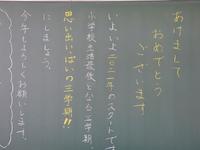 あけまして
おめでとう
ございます
いよいよ二〇二一年のスタートです
小学校生活最後となる三学期。
思い出いっぱいの三学期!!
にしましょう。
今年もよろしくお願いします。